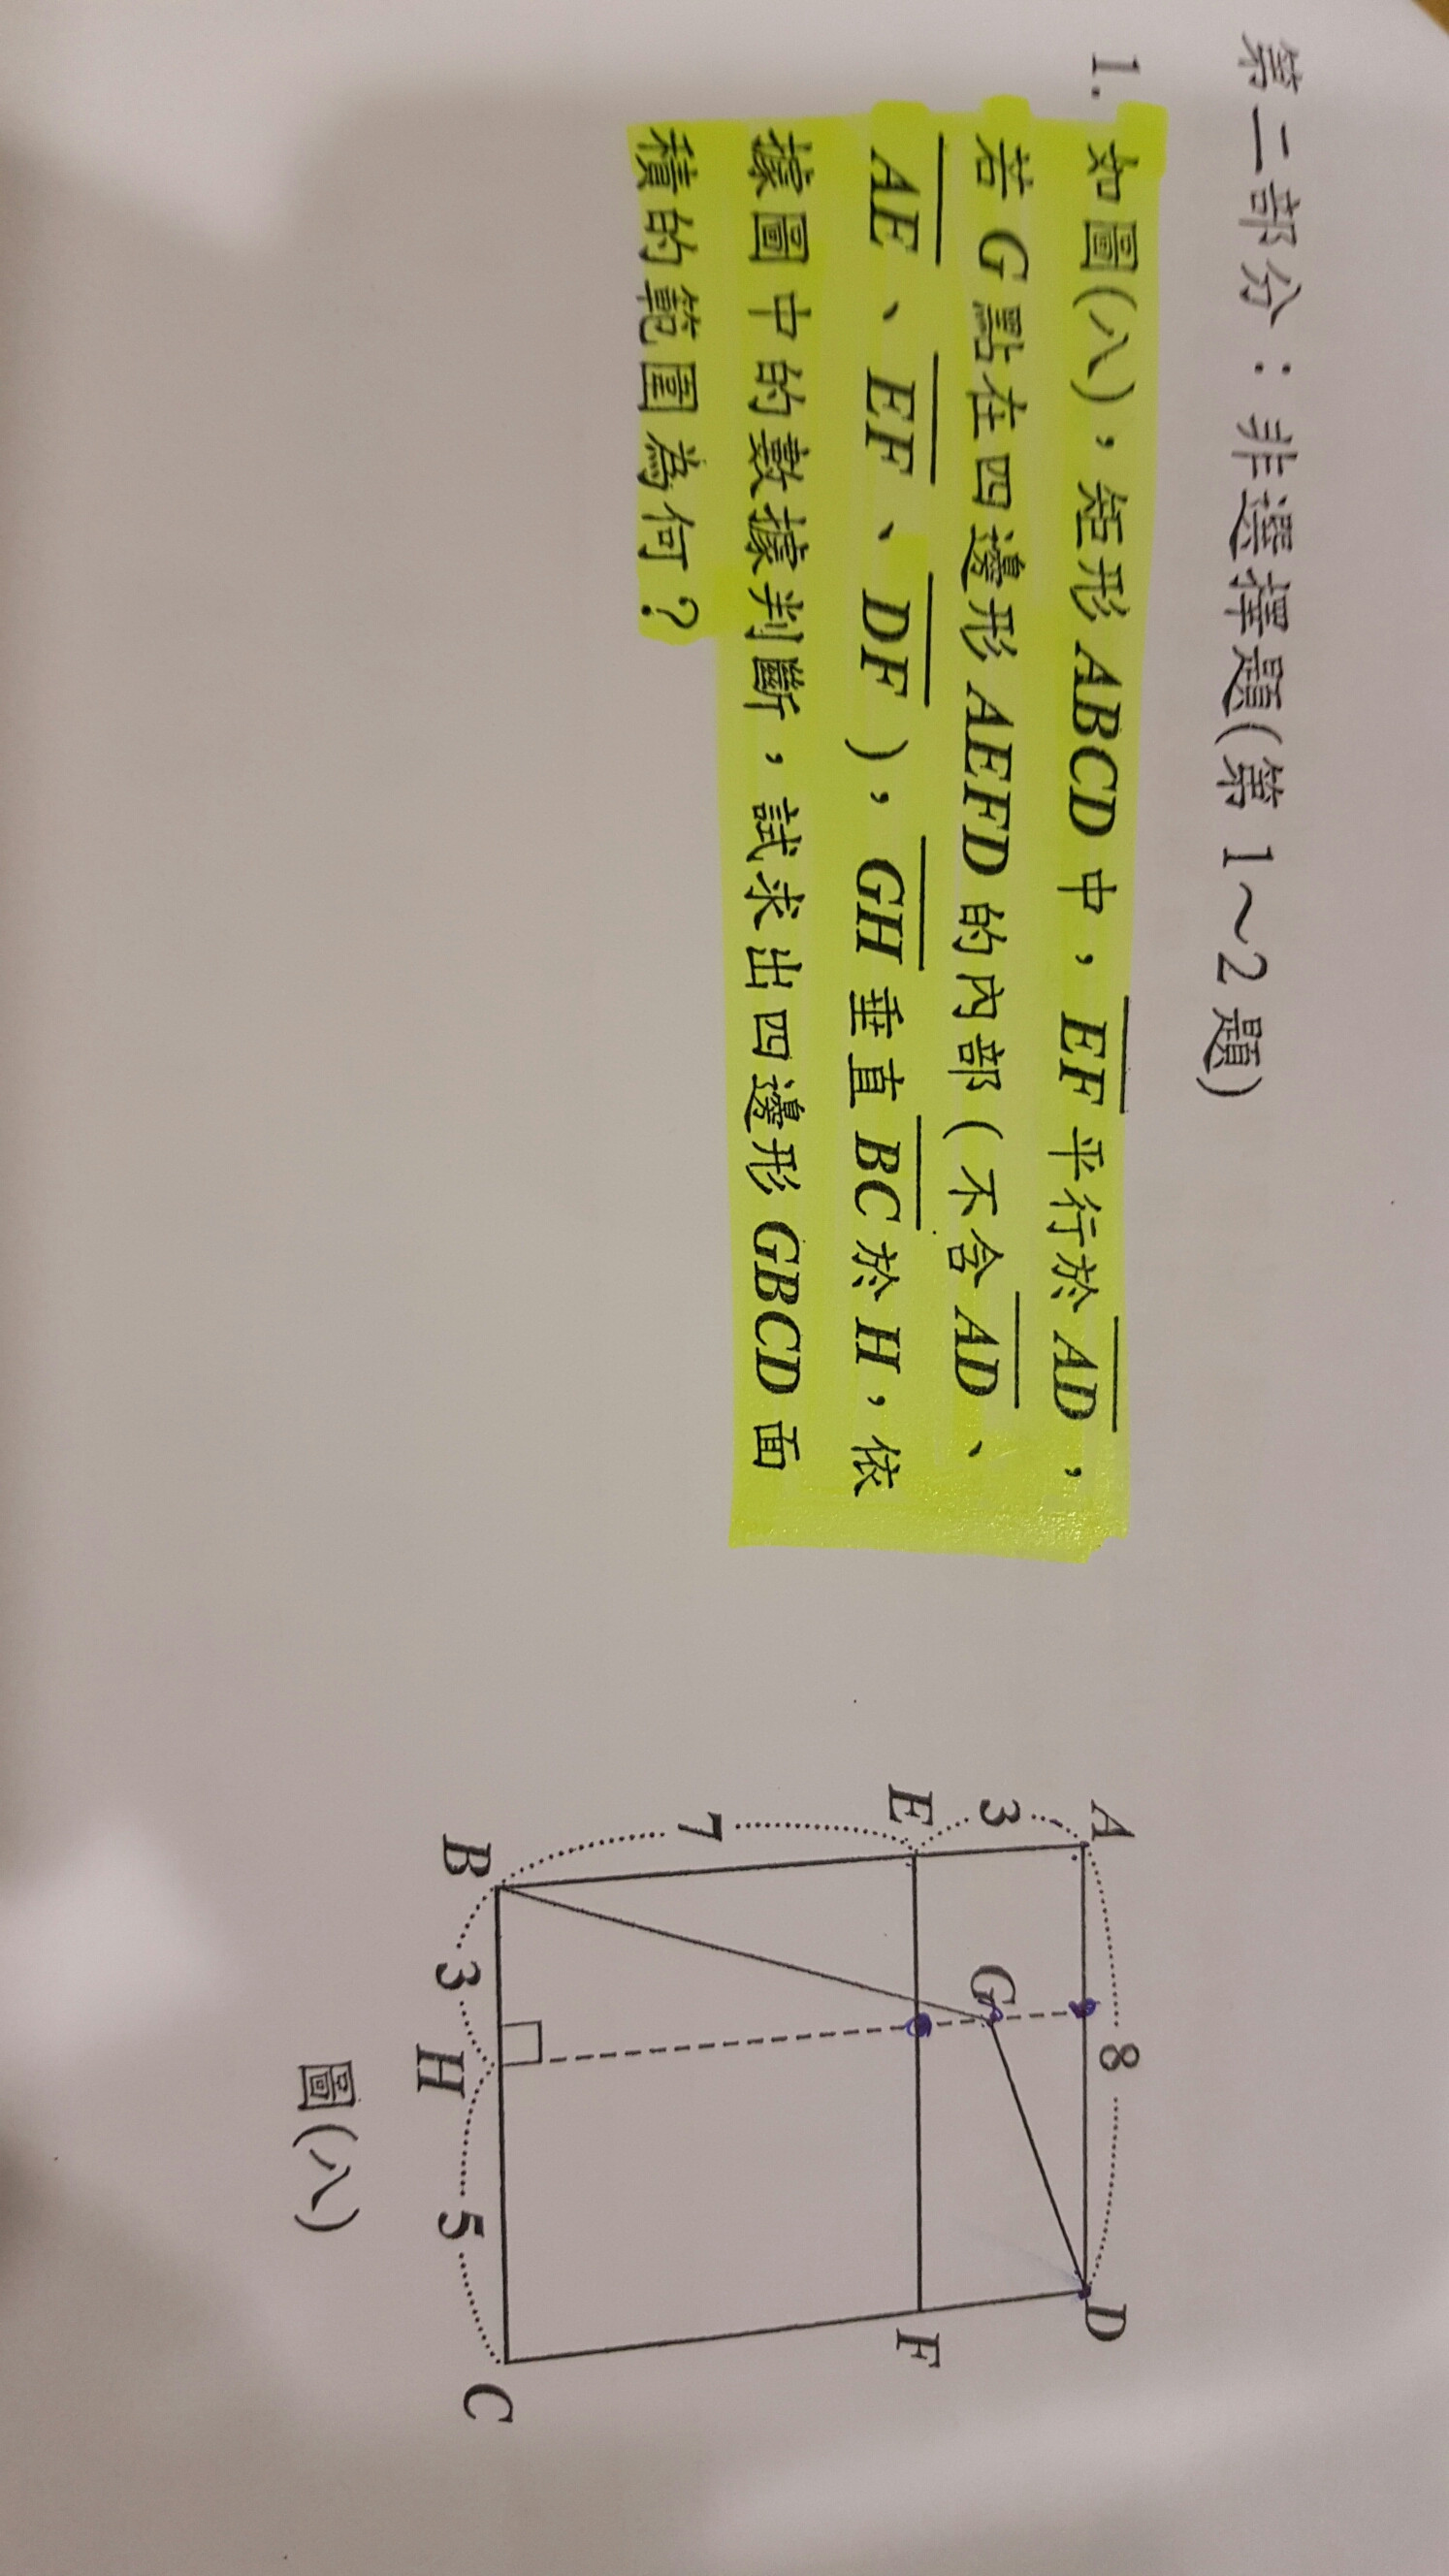 第二部分：非選擇題(第 1～2 題)
1. 如圖(八)，矩形 ABCD 中，EF 平行於 AD，
若 G 點在四邊形 AEFD 的內部（不含 AD、
AE、EF、DF），GH 垂直 BC 於 H，依
據圖中的數據判斷，試求出四邊形 GBCD 面
積的範圍為何？
A
8
D
3
G
E
F
7
B
3
H
5
C
圖(八)